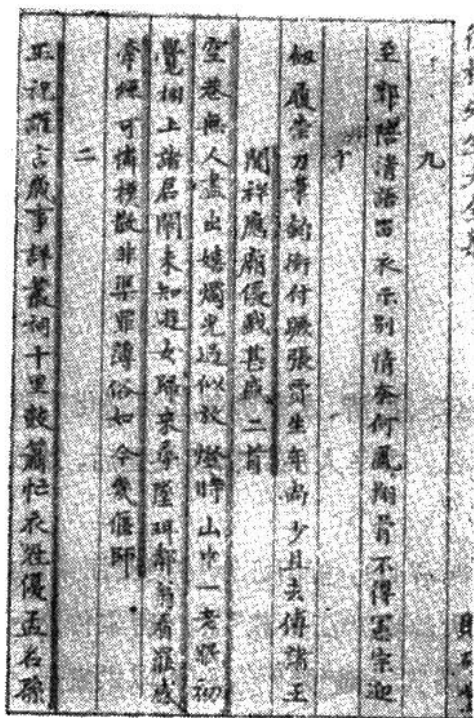 九
至郭陪清語留衣示別情奈何鳳翔骨不得憲宗迎
十
劍履崇刀筆鈞衡付蹶張賈生年尚少且去傅諸王
聞祥應廟優戲甚盛二首
空巷無人盡出嬉燭光過似放燈時山中一老眠初
覺棚上諸君鬧未知遊女歸來尋墜珥鄰翁看罷感
牽絲可憐樸散非渠罪薄俗如今幾偃師
二
巫祝讙言歲事詳叢祠十里鼓簫忙衣冠優孟名孫